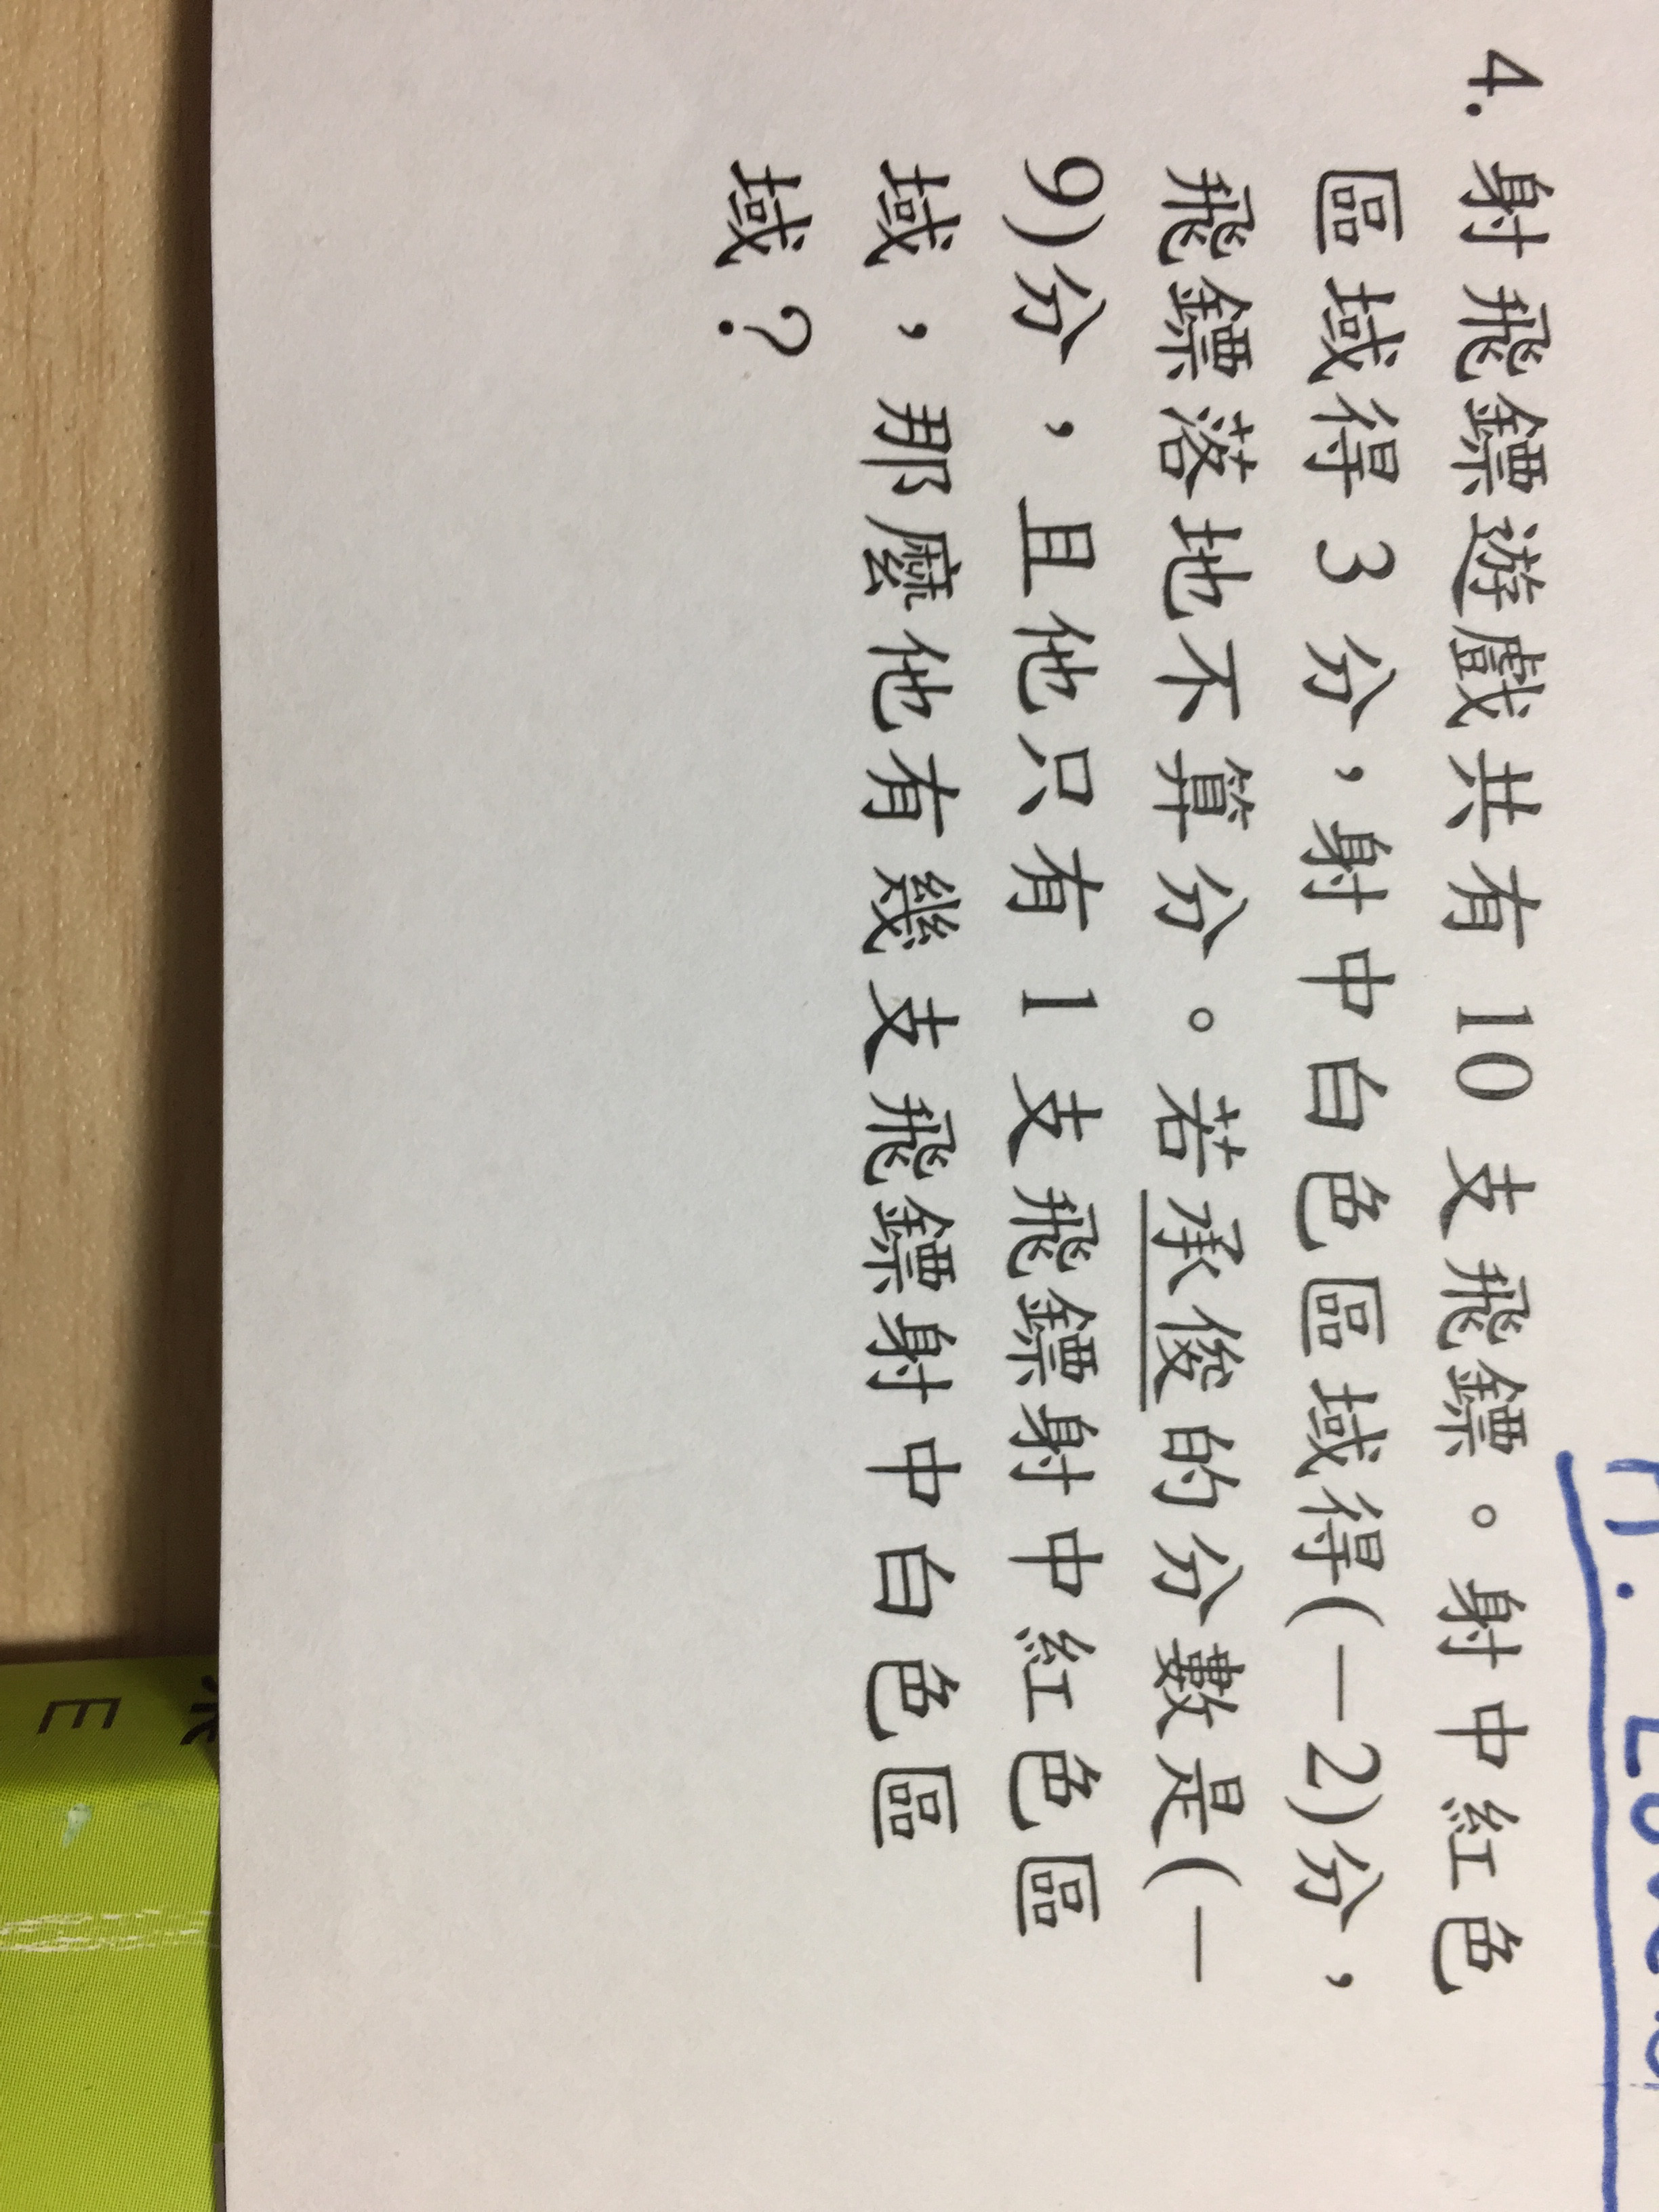 4. 射飛鏢遊戲共有 10 支飛鏢。射中紅色
區域得 3 分,射中白色區域得(-2)分,
飛鏢落地不算分。若承俊的分數是(-
9)分,且他只有 1 支飛鏢射中紅色區
域,那麼他有幾支飛鏢射中白色區
域?
E